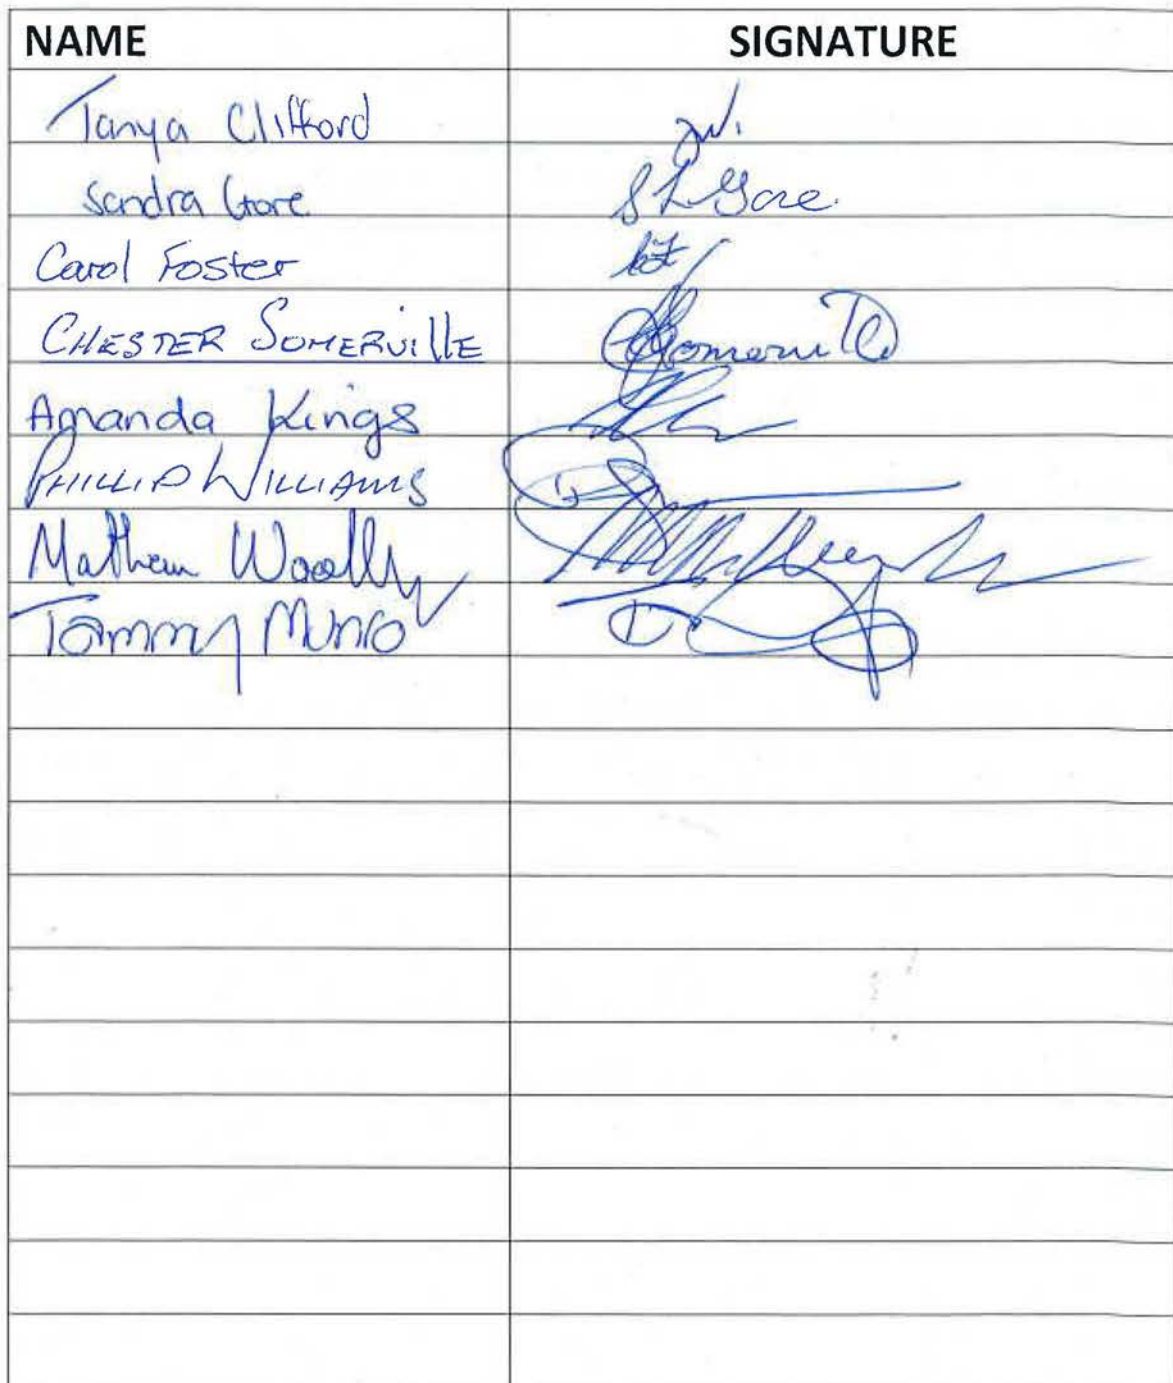 NAME SIGNATURE
Tanya Clifford
Sandra Gore S L Gore
Carol Foster
CHESTER SOMERVILLE CSomerville
Amanda Kings
PHILLIP WILLIAMS
Mathew
Tammy Munro